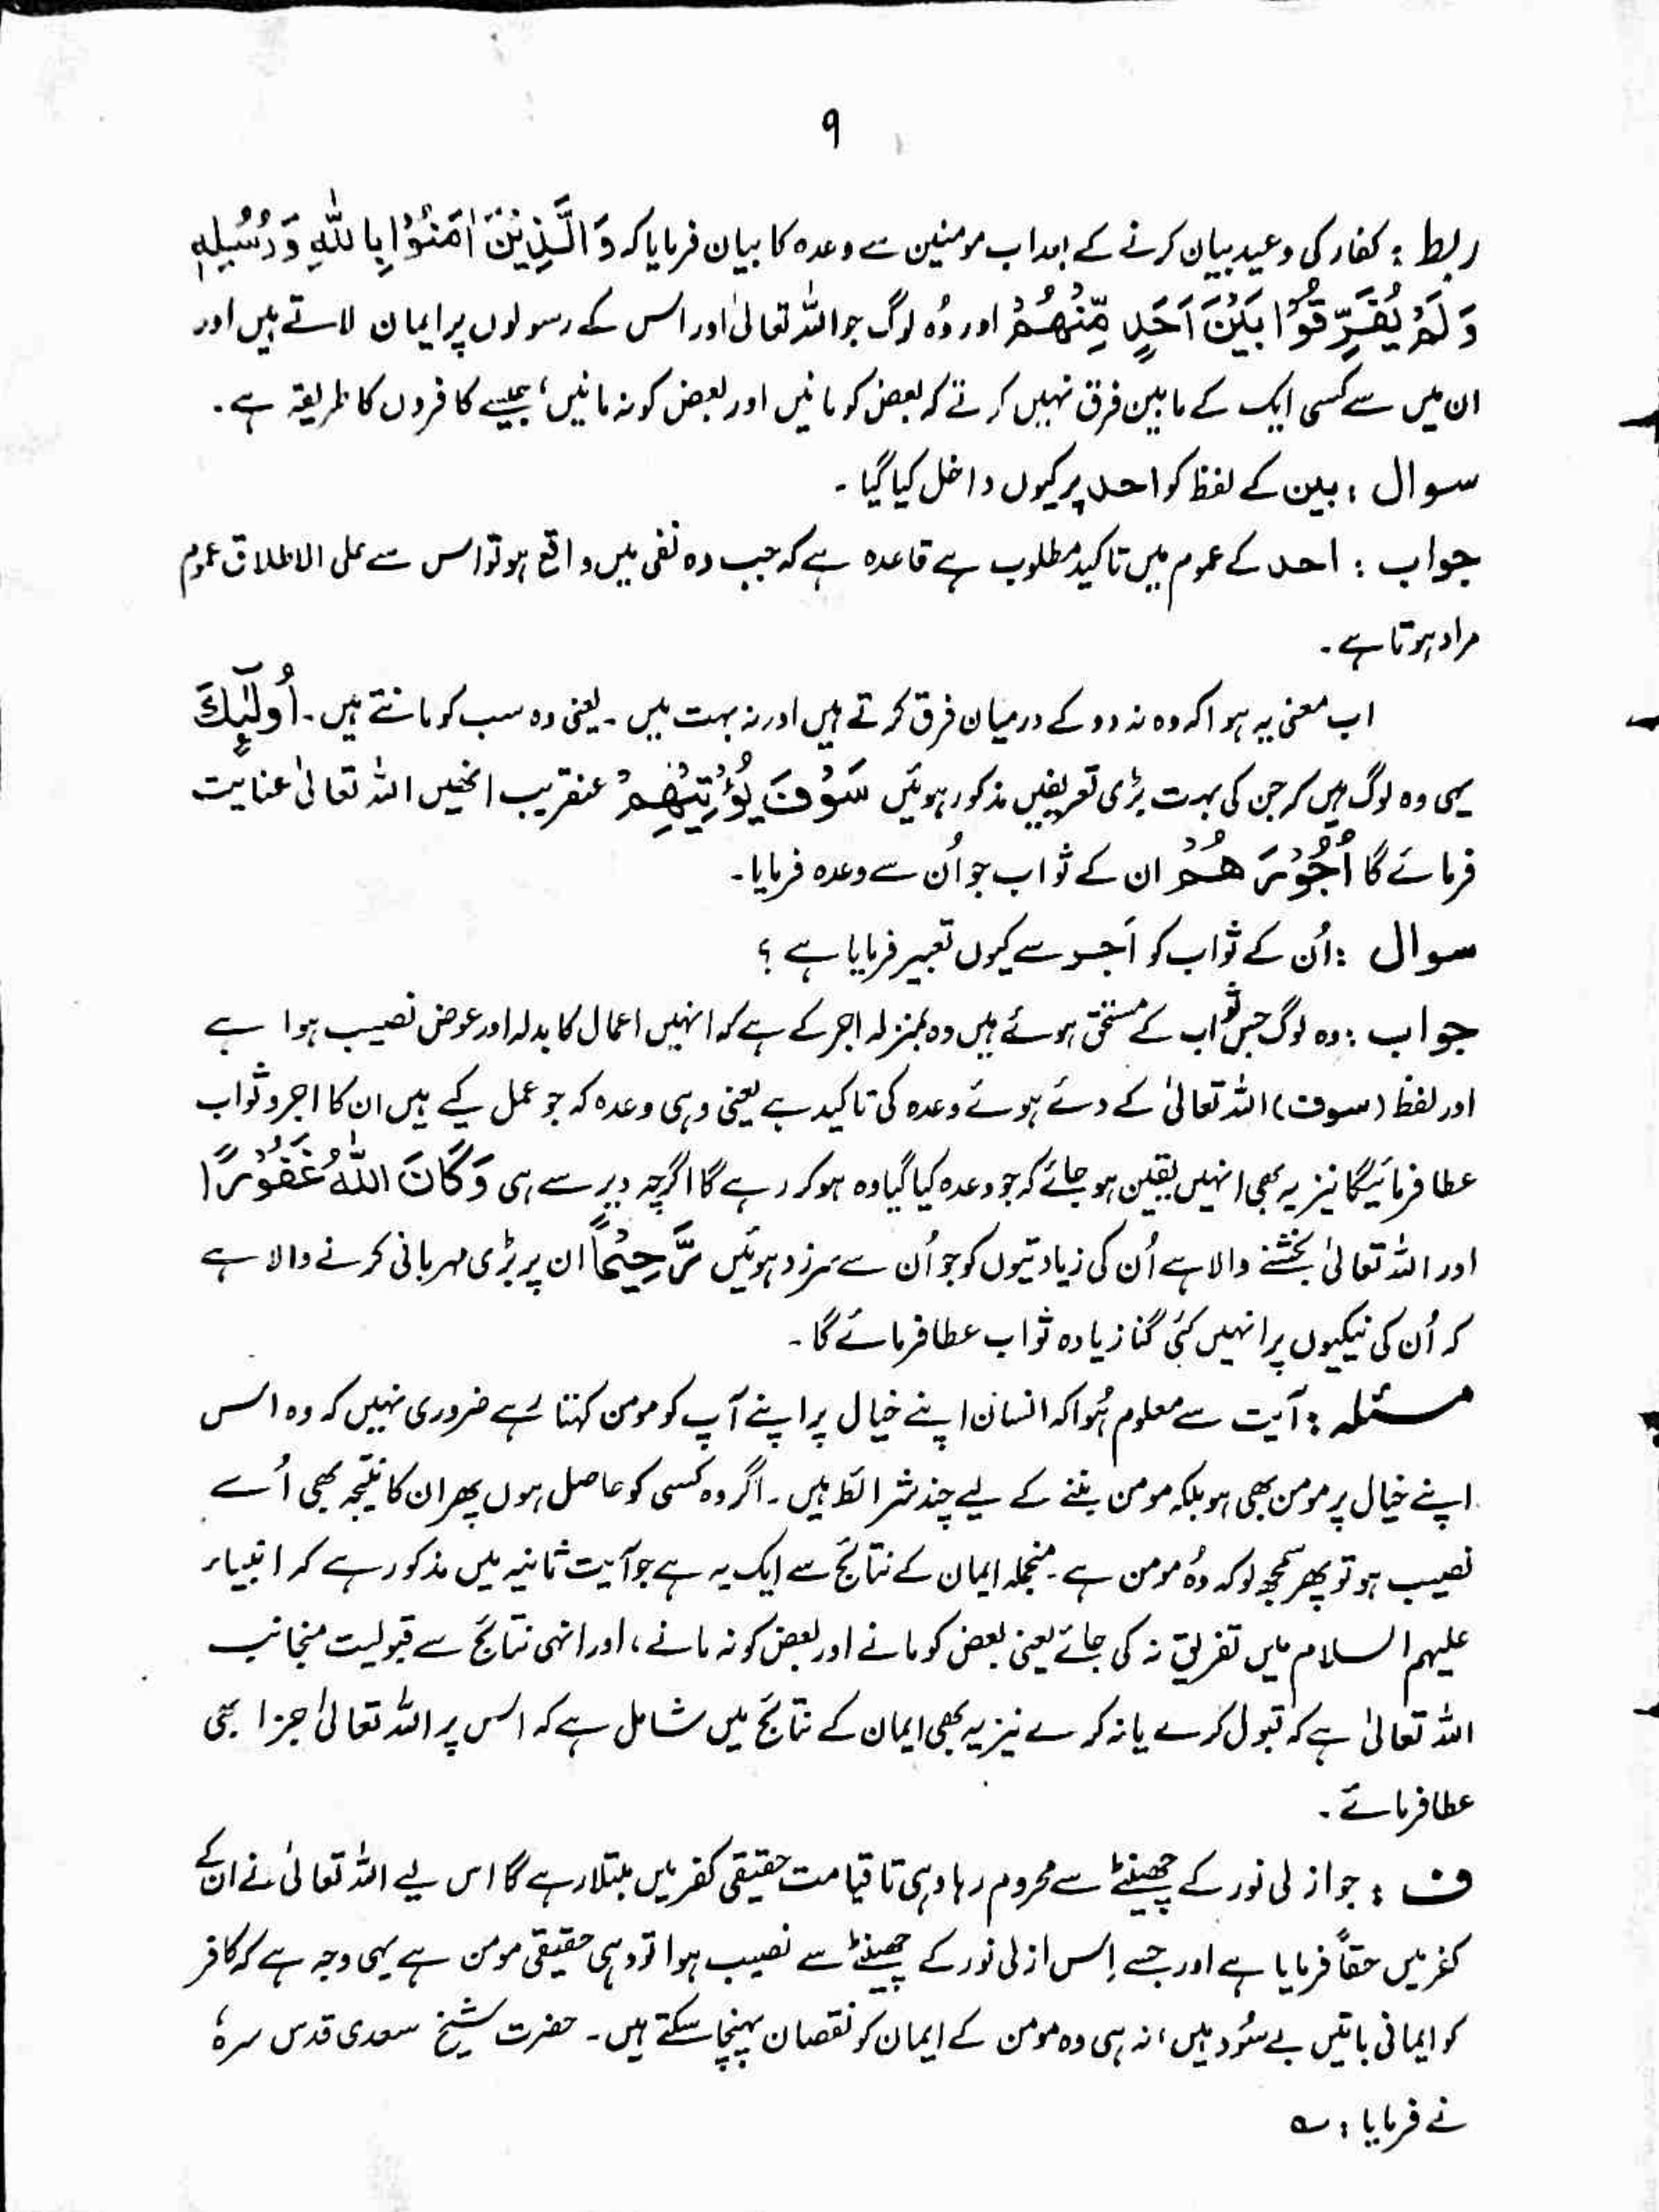 ۹
ربط : کفار کی وعید بیان کرنے کے بعد اب مومنین سے وعدہ کا بیان فرمایا کہ وَ الَّذِیْنَ اٰمَنُوْا بِاللّٰہِ وَ رُسُلِہٖ
وَ لَمْ یُفَرِّقُوْا بَیْنَ اَحَدٍ مِّنْھُمْ اور وُہ لوگ جو اللہ تعالیٰ اور اس کے رسولوں پر ایمان لاتے ہیں اور
ان میں سے کسی ایک کے مابین فرق نہیں کرتے کہ بعض کو مانیں اور بعض کو نہ مانیں، جیسے کافروں کا طریقہ ہے۔
سوال : بین کے لفظ کو احد پر کیوں داخل کیا گیا ۔
جواب : احد کے عموم میں تاکید مطلوب ہے قاعدہ ہے کہ جب وہ نفی میں واقع ہو تو اس سے علی الاطلاق عموم
مراد ہوتا ہے ۔
اب معنی یہ ہوا کہ وہ نہ دو کے درمیان فرق کرتے ہیں اور نہ بہت میں ۔ یعنی وہ سب کو مانتے ہیں ۔ اُولٰٓئِکَ
یہی وہ لوگ ہیں کہ جن کی بہت بڑی تعریفیں مذکور ہوئیں سَوْفَ یُؤْتِیْھِمْ عنقریب انھیں اللہ تعالیٰ عنایت
فرمائے گا اُجُوْرَھُمْ ان کے ثواب جو اُن سے وعدہ فرمایا ۔
سوال : اُن کے ثواب کو اَجر سے کیوں تعبیر فرمایا ہے ؟
جواب : وہ لوگ جس ثواب کے مستحق ہوئے ہیں وہ بمنزلہ اجر کے ہے کہ انہیں اعمال کا بدلہ اور عوض نصیب ہوا ہے
اور لفظ (سوف) اللہ تعالیٰ کے دئے ہوئے وعدہ کی تاکید ہے یعنی وہی وعدہ کہ جو عمل کیے ہیں ان کا اجر و ثواب
عطا فرمائیگا نیز یہ بھی انہیں یقین ہو جائے کہ جو وعدہ کیا گیا وہ ہو کر رہے گا اگرچہ دیر سے ہی وَ کَانَ اللّٰہُ غَفُوْرًا
اور اللہ تعالیٰ بخشنے والا ہے اُن کی زیادتیوں کو جو اُن سے سرزد ہوئیں رَّحِیْمًا ان پر بڑی مہربانی کرنے والا ہے
کہ اُن کی نیکیوں پر انہیں کئی گنا زیادہ ثواب عطا فرمائے گا ۔
مسئلہ : آیت سے معلوم ہُوا کہ انسان اپنے خیال پر اپنے آپ کو مومن کہتا رہے ضروری نہیں کہ وہ اس
اپنے خیال پر مومن بھی ہو بلکہ مومن بننے کے لیے چند شرائط ہیں ۔ اگر وہ کسی کو حاصل ہوں پھر ان کا نتیجہ بھی اُسے
نصیب ہو تو پھر سمجھ لو کہ وُہ مومن ہے ۔ منجملہ ایمان کے نتائج سے ایک یہ ہے جو آیت ثانیہ میں مذکور ہے کہ انبیاء
علیہم السلام میں تفریق نہ کی جائے یعنی بعض کو مانے اور بعض کو نہ مانے ، اور انہی نتائج سے قبولیت منجانب
اللہ تعالیٰ ہے کہ قبول کرے یا نہ کرے نیز یہ بھی ایمان کے نتائج میں شامل ہے کہ اس پر اللہ تعالیٰ جزا بھی
عطا فرمائے ۔
ف : جو ازلی نور کے چھینٹے سے محروم رہا وہی تا قیامت حقیقی کفر میں مبتلا رہے گا اس لیے اللہ تعالیٰ نے ان کے
کفر میں حقاً فرمایا ہے اور جسے اِس ازلی نور کے چھینٹے سے نصیب ہوا تو وہی حقیقی مومن ہے یہی وجہ ہے کہ کافر
کو ایمانی باتیں بے سُود ہیں ، نہ ہی وہ مومن کے ایمان کو نقصان پہنچا سکتے ہیں ۔ حضرت شیخ سعدی قدس سرہٗ
نے فرمایا : ؎